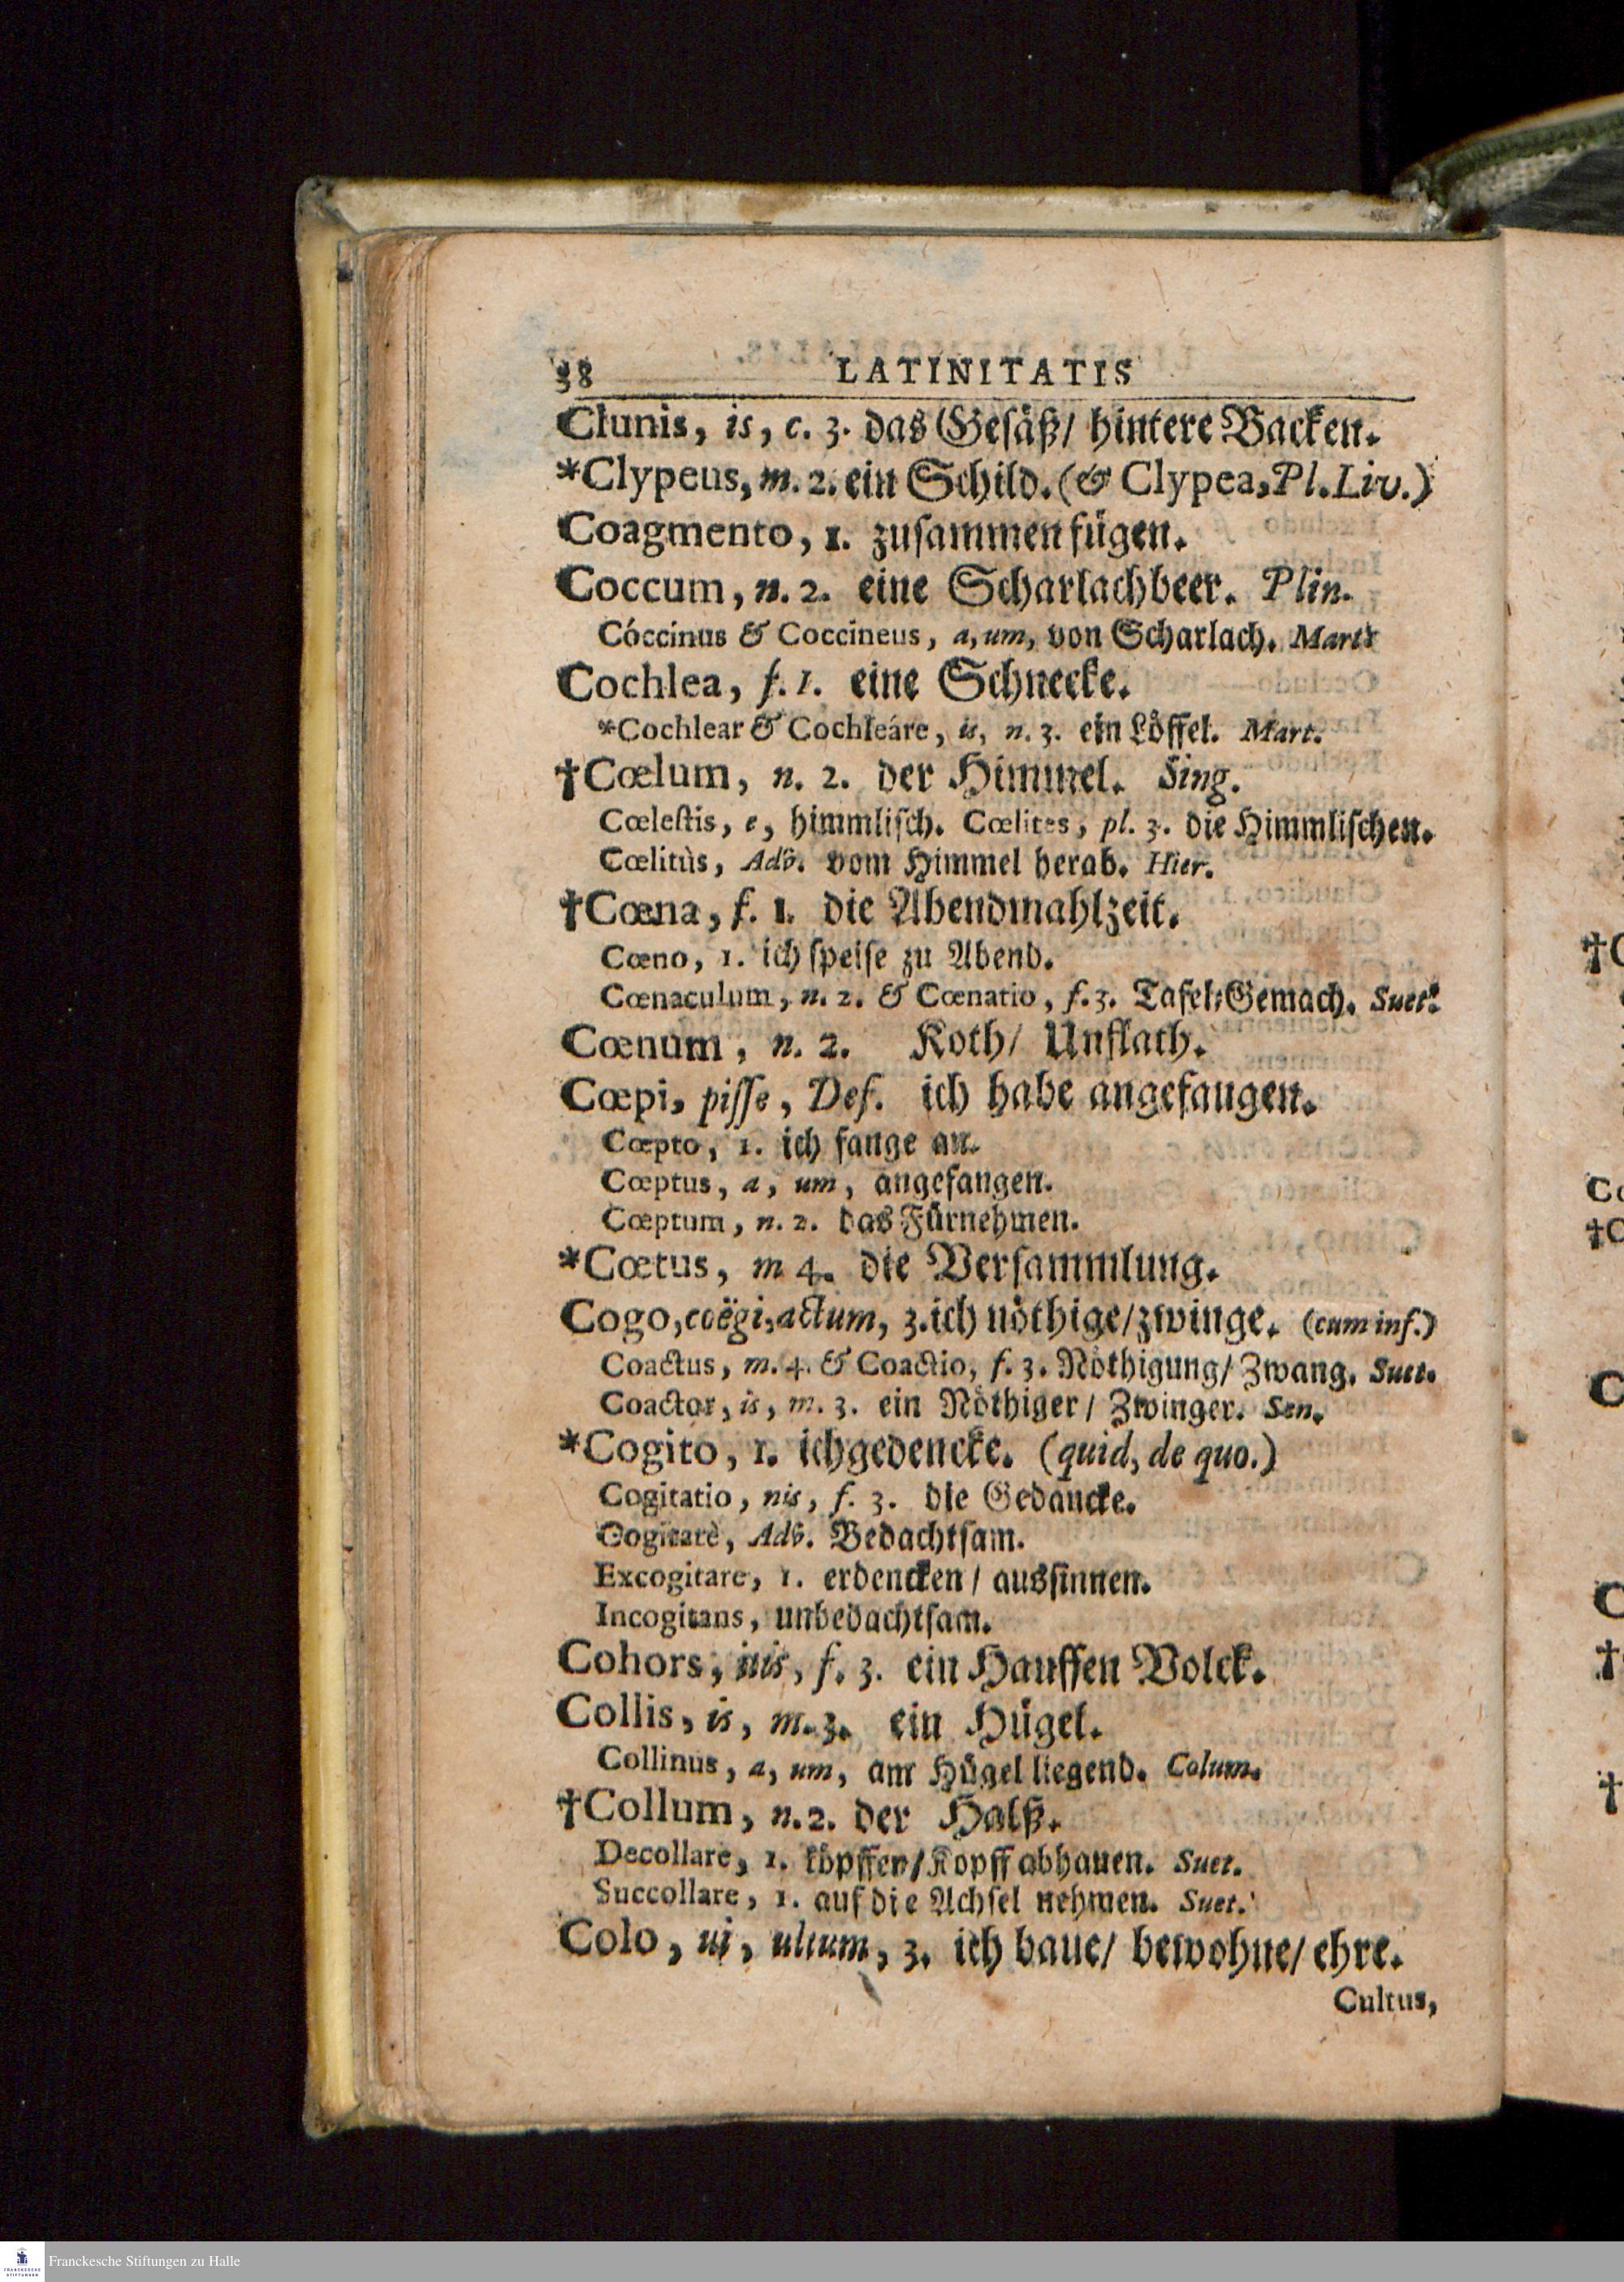 38 LATINITATIS
Clunis, is, c. 3. das Gesäß/ hintere Backen.
*Clypeus, m. 2. ein Schild. (& Clypea, Pl. Liv.)
Coagmento, 1. zusammen fügen.
Coccum, n. 2. eine Scharlachbeer. Plin.
Cóccinus & Coccineus, a, um, von Scharlach. Mart.
Cochlea, f. 1. eine Schnecke.
*Cochlear & Cochleáre, is, n. 3. ein Löffel. Mart.
†Cœlum, n. 2. der Himmel. Sing.
Cœlestis, e, himmlisch. Cœlites, pl. 3. die Himmlischen.
Cœlitùs, Adv. vom Himmel herab. Hier.
†Cœna, f. 1. die Abendmahlzeit.
Cœno, 1. ich speise zu Abend.
Cœnaculum, n. 2. & Cœnatio, f. 3. Tafel-Gemach. Suet.
Cœnum, n. 2. Koth/ Unflath.
Cœpi, pisse, Def. ich habe angefangen.
Cœpto, 1. ich fange an.
Cœptus, a, um, angefangen.
Cœptum, n. 2. das Fürnehmen.
*Cœtus, m 4. die Versammlung.
Cogo, coëgi, actum, 3. ich nöthige/ zwinge. (cum inf.)
Coactus, m. 4. & Coactio, f. 3. Nöthigung/ Zwang. Suet.
Coactor, is, m. 3. ein Nöthiger/ Zwinger. Sen.
*Cogito, 1. ich gedencke. (quid, de quo.)
Cogitatio, nis, f. 3. die Gedancke.
Cogitatè, Adv. Bedachtsam.
Excogitare, 1. erdencken/ aussinnen.
Incogitans, unbedachtsam.
Cohors, f. 3. ein Hauffen Volck.
Collis, is, m. 3. ein Hügel.
Collinus, a, um, am Hügel liegend. Colum.
†Collum, n. 2. der Halß.
Decollare, 1. köpffen/ Kopff abhauen. Suet.
Succollare, 1. auf die Achsel nehmen. Suet.
Colo, ui, ultum, 3. ich baue/ bewohne/ ehre.
Cultus,
Franckesche Stiftungen zu Halle